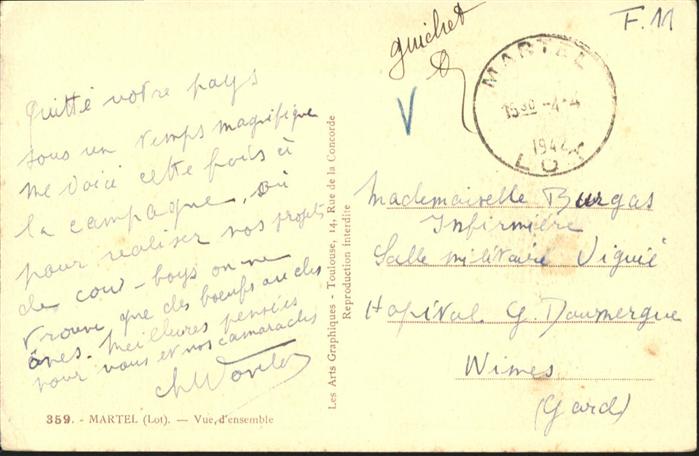 Quitté votre pays
sous un temps magnifique
me voici cette fois à
la campagne, où
pour realiser nos projets
de cow-boys on ne
trouve, que des boeufs ou des
ânes. Meilleures pensées
pour vous et nos camarades
359. - MARTEL (Lot). — Vue d'ensemble
Les Arts Graphiques - Toulouse, 14, Rue de la Concorde
Reproduction interdite
guichet
F.M
V
MARTEL
15 30 -4-4
1942
LOT
Mademoiselle Burgas
Infirmière
Salle militaire Viguié
Hopital G. Doumergue
Nimes
(Gard)